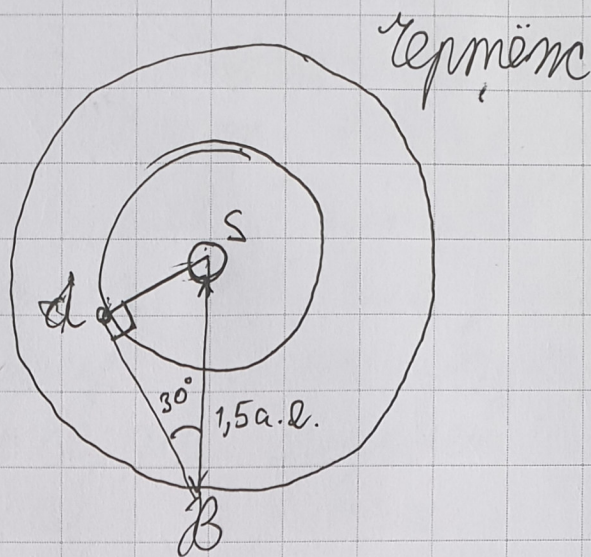 Чертёж
S
A
30°
1,5 а.е.
B